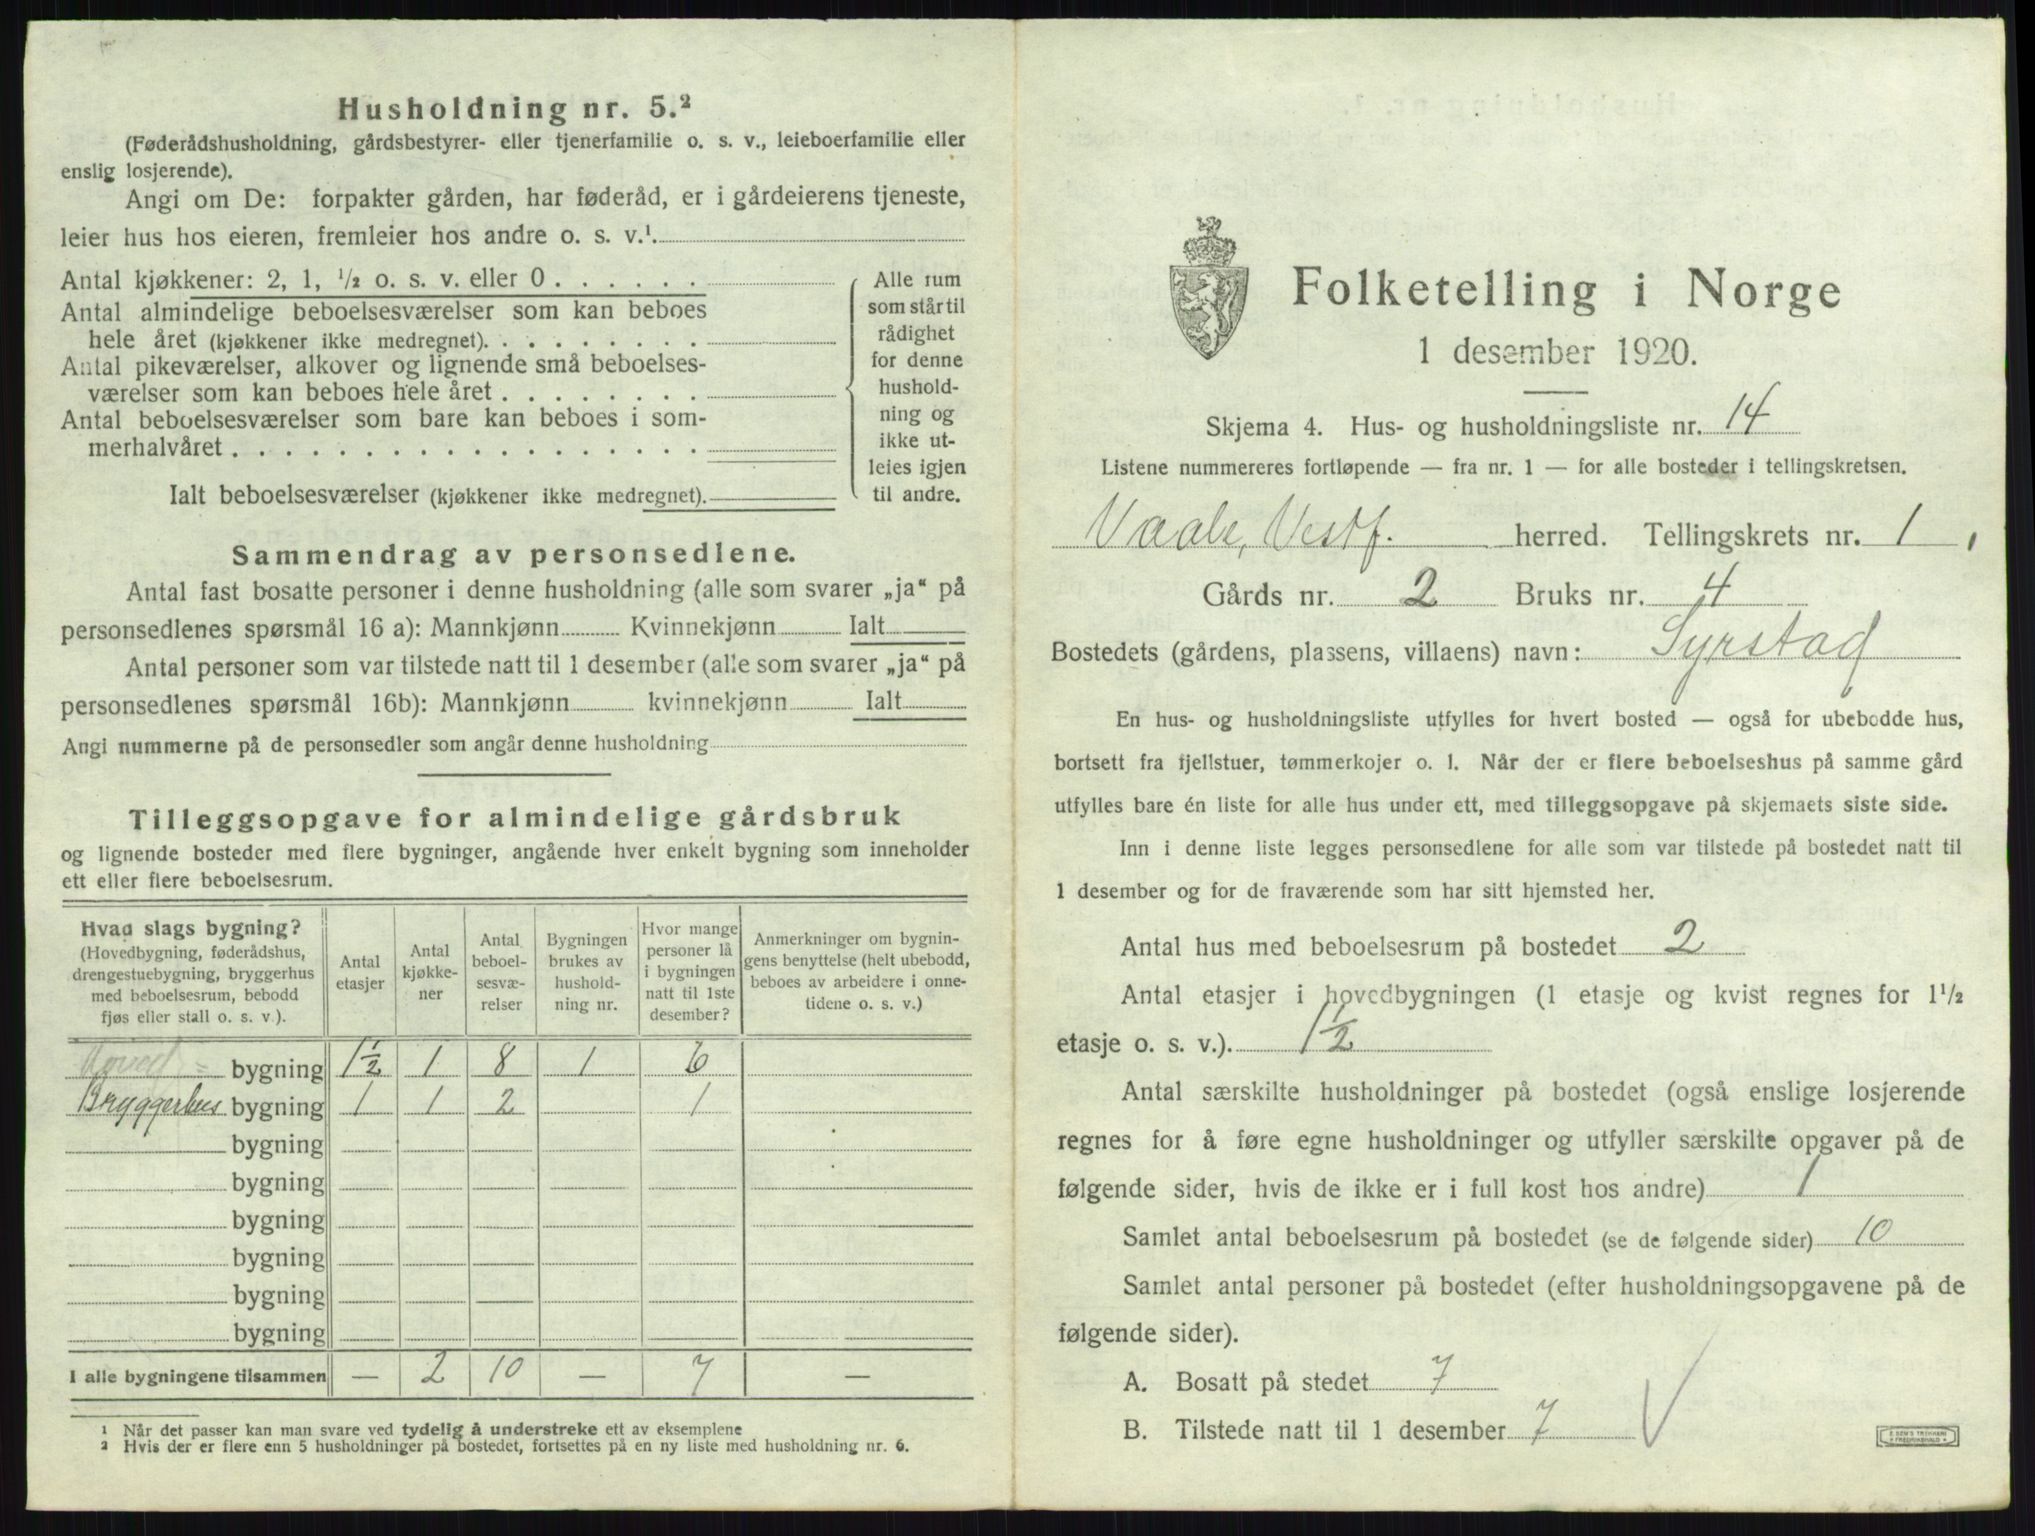 Husholdning nr. 5.²
(Føderådshusholdning, gårdsbestyrer- eller tjenerfamilie o. s. v., leieboerfamilie eller
enslig losjerende).
Angi om De: forpakter gården, har føderåd, er i gårdeierens tjeneste,
leier hus hos eieren, fremleier hos andre o. s. v.¹.
Antal kjøkkener: 2, 1, ½ o. s. v. eller 0 . . . . . .
Antal almindelige beboelsesværelser som kan beboes
hele året (kjøkkener ikke medregnet). . . . . . . . .
Antal pikeværelser, alkover og lignende små beboelses-
værelser som kan beboes hele året . . . . . . . .
Antal beboelsesværelser som bare kan beboes i som-
merhalvåret . . . . . . . . . . . . . . . . . .
Ialt beboelsesværelser (kjøkkener ikke medregnet).
Alle rum
som står til
rådighet
for denne
hushold-
ning og
ikke ut-
leies igjen
til andre.
Sammendrag av personsedlene.
Antal fast bosatte personer i denne husholdning (alle som svarer „ja“ på
personsedlenes spørsmål 16 a): Mannkjønn Kvinnekjønn Ialt
Antal personer som var tilstede natt til 1 desember (alle som svarer „ja“ på
personsedlenes spørsmål 16b): Mannkjønn kvinnekjønn Ialt
Angi nummerne på de personsedler som angår denne husholdning
Tilleggsopgave for almindelige gårdsbruk
og lignende bosteder med flere bygninger, angående hver enkelt bygning som inneholder
ett eller flere beboelsesrum.
Hvad slags bygning?
(Hovedbygning, føderådshus,
drengestuebygning, bryggerhus
med beboelsesrum, bebodd
fjøs eller stall o. s. v.).
Antal
etasjer
Antal
kjøkke-
ner
Antal
beboel-
sesvæ-
relser
Bygningen
brukes av
hushold-
ning nr.
Hvor mange
personer lå
i bygningen
natt til 1ste
desember?
Anmerkninger om bygnin-
gens benyttelse (helt ubebodd,
beboes av arbeidere i onne-
tidene o. s. v.)
Hoved- bygning 1½ 1 8 1 6
Bryggerhus bygning 1 1 2 1
bygning
bygning
bygning
bygning
bygning
bygning
I alle bygningene tilsammen — 2 10 — 7 —
¹ Når det passer kan man svare ved tydelig å understreke ett av eksemplene
² Hvis der er flere enn 5 husholdninger på bostedet, fortsettes på en ny liste med husholdning nr. 6.
Folketelling i Norge
1 desember 1920.
Skjema 4. Hus- og husholdningsliste nr. 14
Listene nummereres fortløpende — fra nr. 1 — for alle bosteder i tellingskretsen.
Vaale, Vestf. herred. Tellingskrets nr. 1
Gårds nr. 2 Bruks nr. 4
Bostedets (gårdens, plassens, villaens) navn: Syrstad
En hus- og husholdningsliste utfylles for hvert bosted — også for ubebodde hus,
bortsett fra fjellstuer, tømmerkojer o. l. Når der er flere beboelseshus på samme gård
utfylles bare én liste for alle hus under ett, med tilleggsopgave på skjemaets siste side.
Inn i denne liste legges personsedlene for alle som var tilstede på bostedet natt til
1 desember og for de fraværende som har sitt hjemsted her.
Antal hus med beboelsesrum på bostedet 2
Antal etasjer i hovedbygningen (1 etasje og kvist regnes for 1½
etasje o. s. v.). 1½
Antal særskilte husholdninger på bostedet (også enslige losjerende
regnes for å føre egne husholdninger og utfyller særskilte opgaver på de
følgende sider, hvis de ikke er i full kost hos andre) 1
Samlet antal beboelsesrum på bostedet (se de følgende sider) 10
Samlet antal personer på bostedet (efter husholdningsopgavene på de
følgende sider).
A. Bosatt på stedet 7
B. Tilstede natt til 1 desember 7